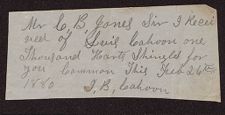 Mr C. B Jones Sir I Recei
ved of Cahoon one
Thousand Hearts Shingls for
you Common This Feb 26th
1880
Cahoon